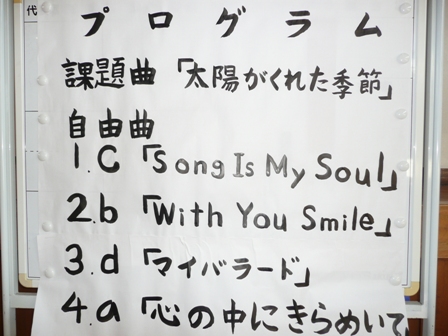 代
プログラム
課題曲「太陽がくれた季節」
自由曲
1.C「Song Is My Soul」
2.b「With You Smile」
3.d「マイバラード」
4.a「心の中にきらめいて